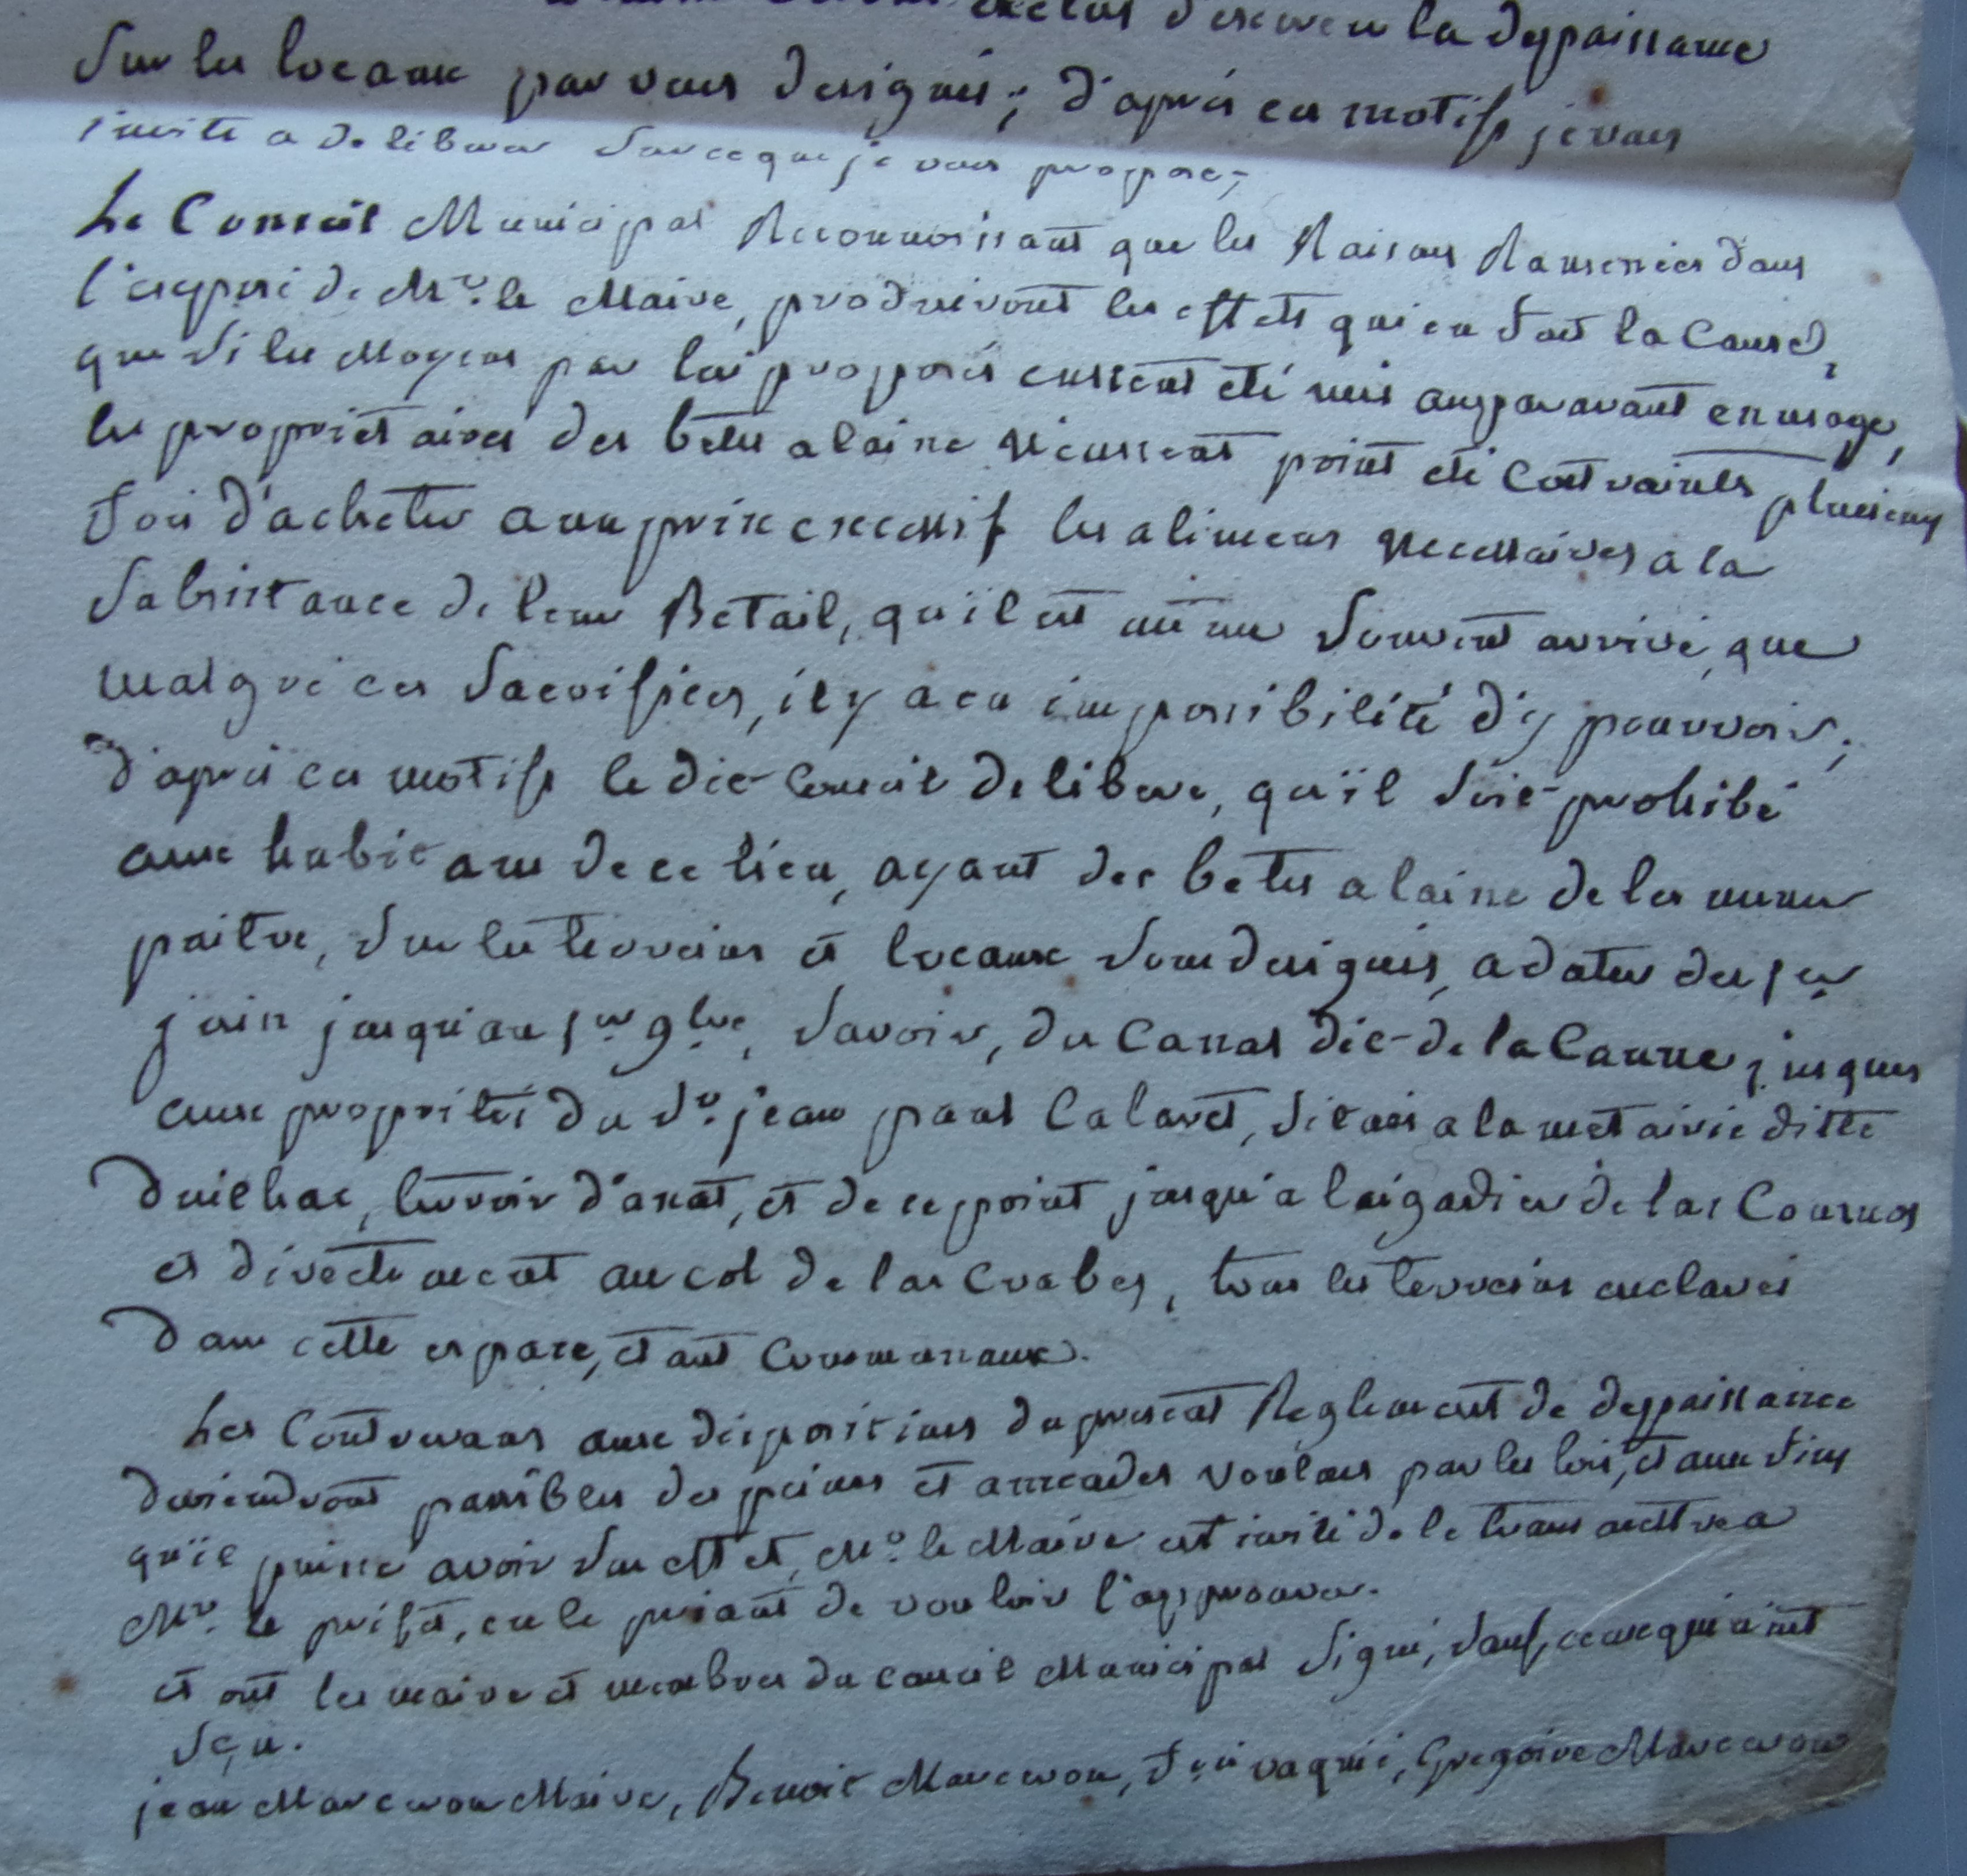 exclus d'exercer la depaissance
Sur les locaux par vous designés; d'aprés ces motifs je vous
invite a deliberer Sur ce que je vous propose;
Le Conseil Municipal Reconnoissant que les Raisons Ramenées dans
l'exposé de Mr. le Maire, produiront les effets qui en Sont la Cause,
que Si les Moyens par lui proposés eussent eté mis auparavant en usage,
les proprietaires des betes a laine N'eussent point eté Contraints plusieurs
fois d'acheter a un prix excessif les alimens Necessaires a la
Subsistance de leur Betail, qu'il est même Souvent arrivé, que
malgré ces Sacrifices, il y a eu impossibilité d'y pourvoir;
d'aprés ces motifs le dit Conseil delibere, qu'il Soit prohibé
aux habitans de ce lieu, ayant des betes a laine de les mener
paitre, Sur les terreins et locaux Sous designés, a dater du 1er
juin jusqu'au 1er 9bre, Savoir, du Canal dit de la Canne jusques
aux proprietés du Sr. jean paul Calavet, Situés a la metairie ditte
Duilhac, terroir d'anat, et de ce point jusqu'a laigadier de las Cournos
et directement au col de las Crabes, tous les terreins enclavés
dans cette espace, etant Communaux.
Les Contrevenans aux dispositions du present Reglement de depaissance
deviendront passibles des peines et amendes Voulues par les lois, et aux fins
qu'il puisse avoir Son effet, Mr. le Maire est invité de le transmettre a
Mr. le préfet, en le priant de vouloir l'approuver.
et ont les maire et membres du conseil Municipal Signé, Sauf, ceux qui n'ont
Sçu.
jean Marcerou Maire, Benoit Marcerou, fçois vaquié, Gregoire Marcerou